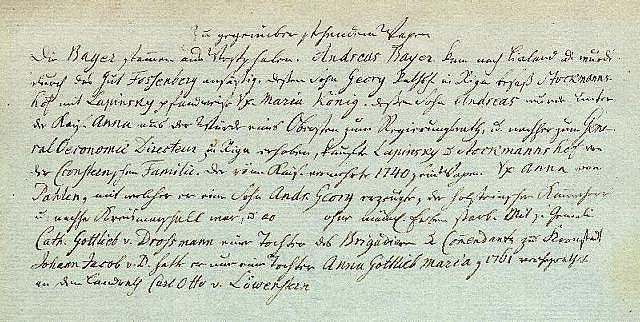 Zu gegenüber stehendem Wapen
Die Bayer stammen aus Westphalen. Andreas Bayer kam nach Livland u. wurde
durch das Gut Fossenberg ansässig. dessen Sohn Georg in Riga besaß Stockmanns-
hof mit Lapinsky pfandweise Ux Maria König. dessen Sohn Andreas wurde unter
der Kays. Anna aus der Würde eines Obristen zum Regierungsrath, u. nachher zum Gene-
ral Oeconomie Directeur zu Riga erhoben, kaufte Lapinsky u Stockmannshof von
der Cronsteinschen Familie. Der röm. Kays. vermehrte 1740 sein Wapen. Ux Anna von
Pahlen, mit welcher er einen Sohn Andr. Georg erzeugte, der holsteinscher Kammerherr
u nachher Kreismarschall war, u ao ohne männl. Erben starb. Mit s. Gemalin
Cath. Gottlieb v. Drossmann einer Tochter des Brigadiers u Comendants zu Kronstadt
Johann Jacob v. D. hatte er nur eine Tochter Anna Gottlieb Maria 1761 verheyrathet
an den Landrath Carl Otto v. Löwenstern